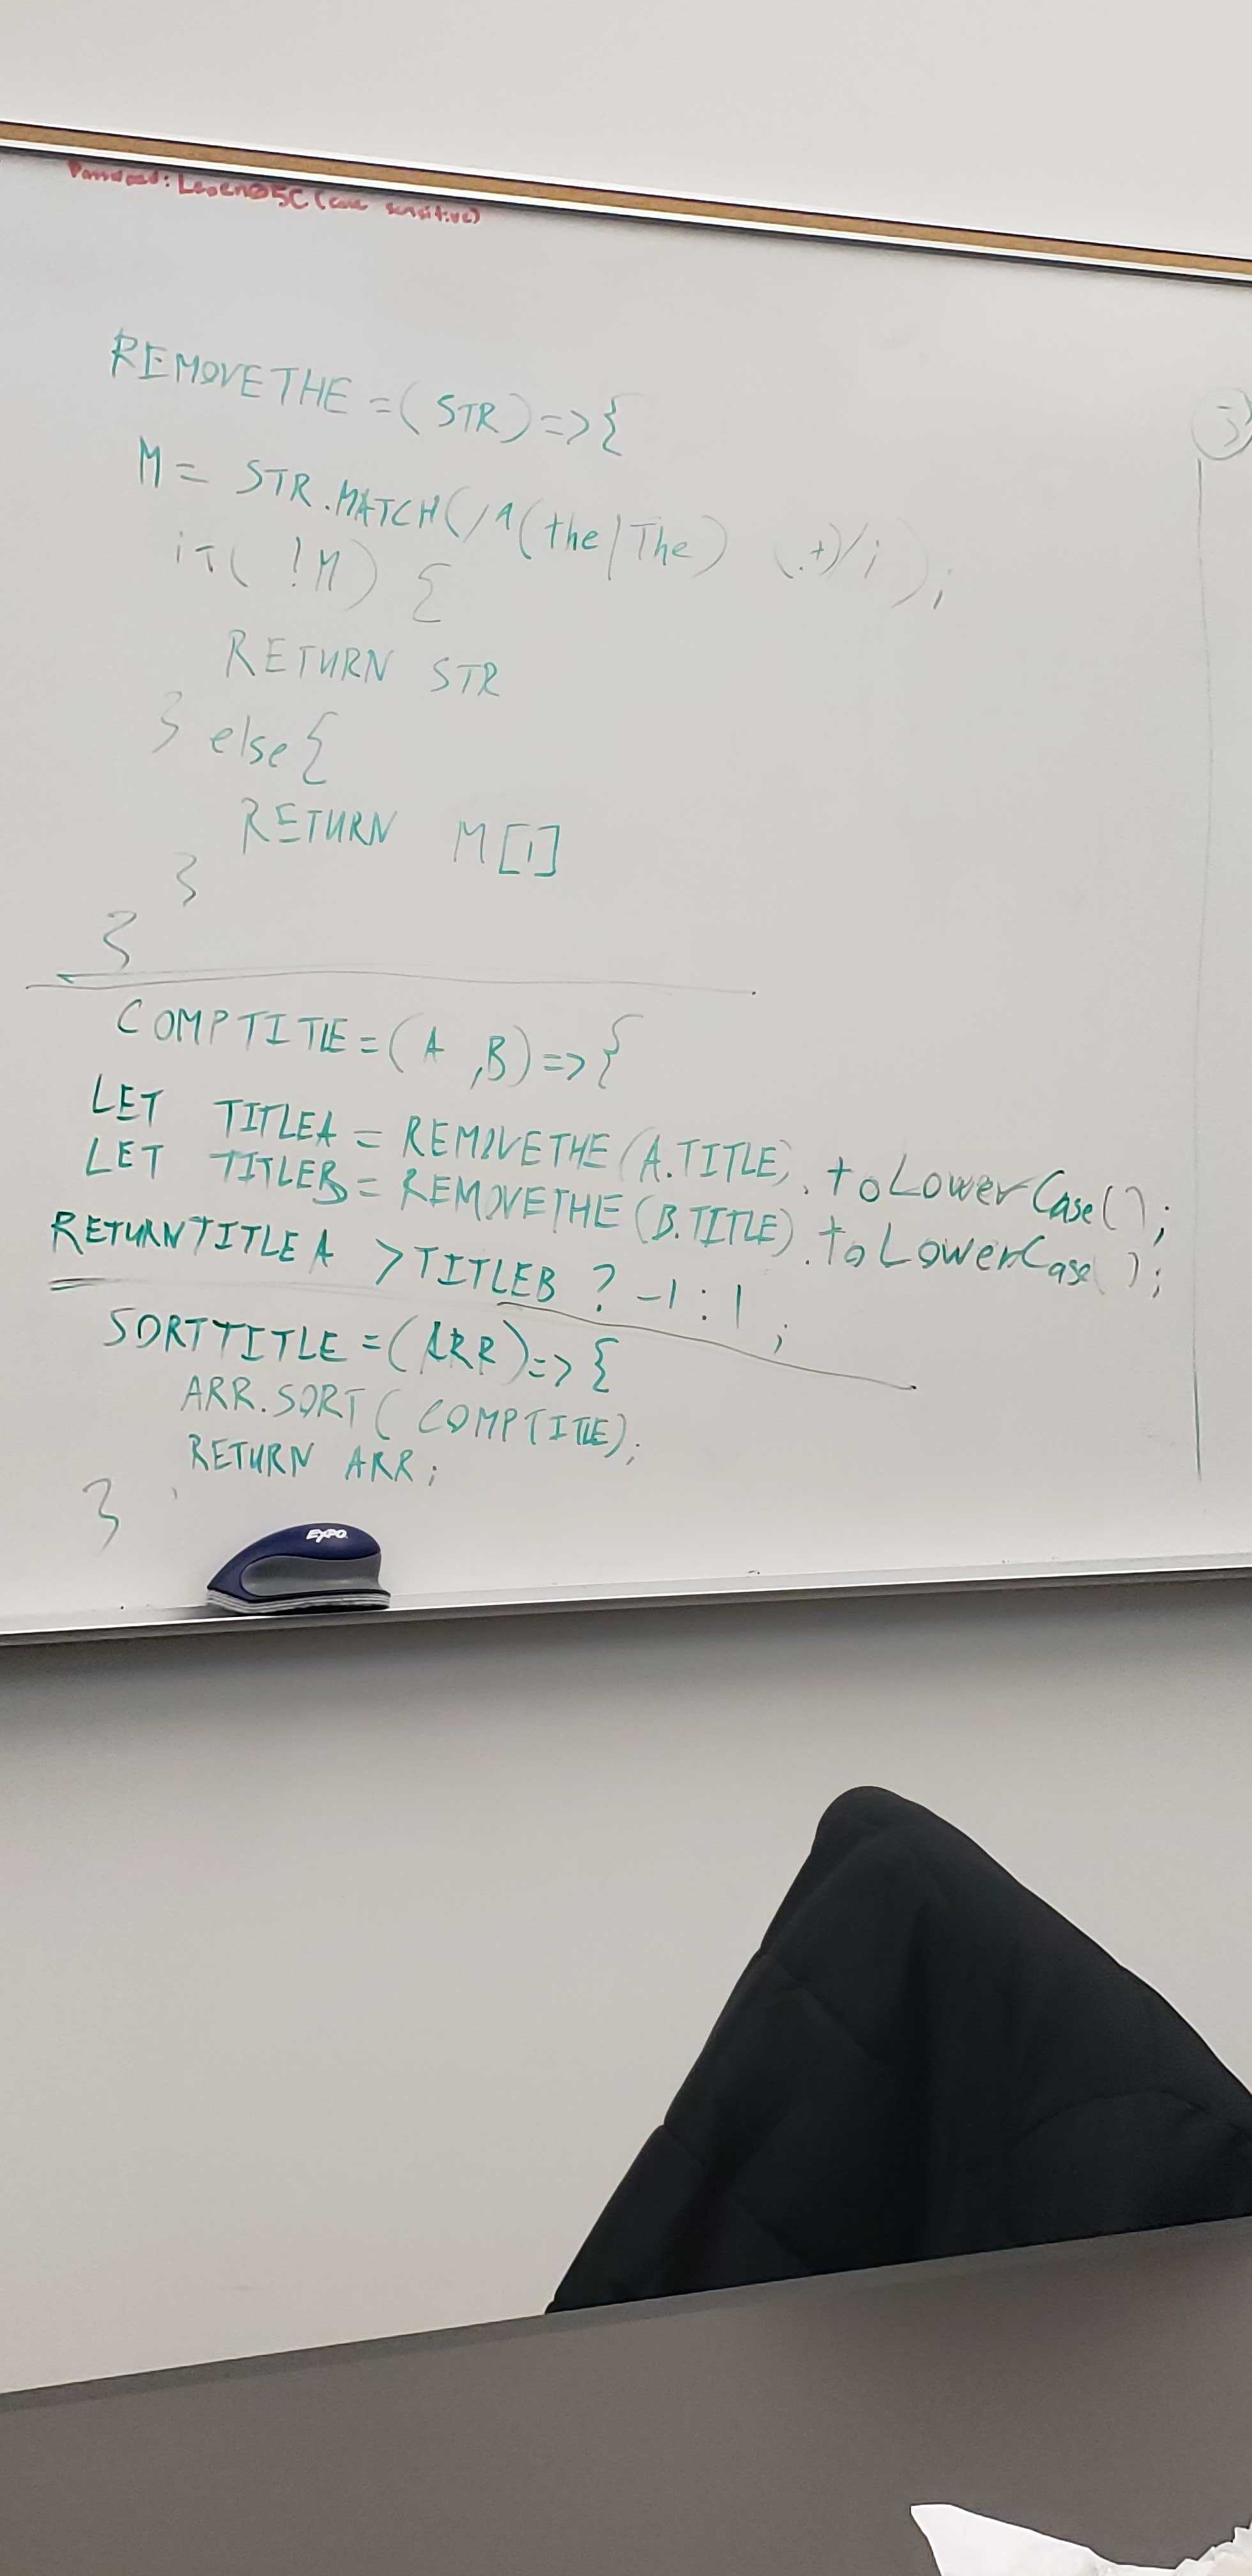 (case sensitive)
REMOVETHE = (STR) => {
M = STR.MATCH(/^(the|The) (.+)/i);
if( !M) {
RETURN STR
} else {
RETURN M[1]
}
}
COMPTITLE = (A ,B) => {
LET TITLEA = REMOVETHE (A.TITLE).toLowerCase();
LET TITLEB = REMOVETHE (B.TITLE).toLowerCase();
RETURN TITLEA > TITLEB ? -1 : 1 ;
SORTTITLE = (ARR) => {
ARR.SORT( COMPTITLE);
RETURN ARR;
}
3
EXPO